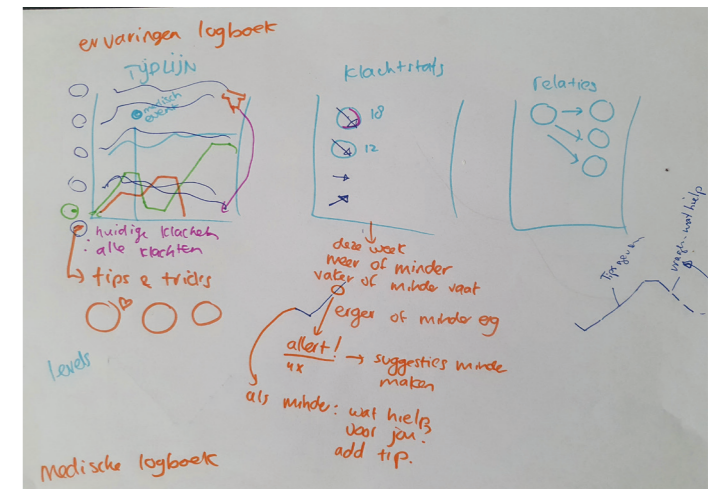 ervaringen logboek
TYDLIJN
medisch
event
huidige klachen
: alle klachten
tips & tricks
levels
Medische logboek
klachtstats
18
12
deze week
meer of minder
vaker of minder vaak
erger of minder erg
allert!
4x
suggesties minder
maken
als minder: wat hielp
voor jou?
add tip.
relaties
Tips geven
vragen: wat hielp